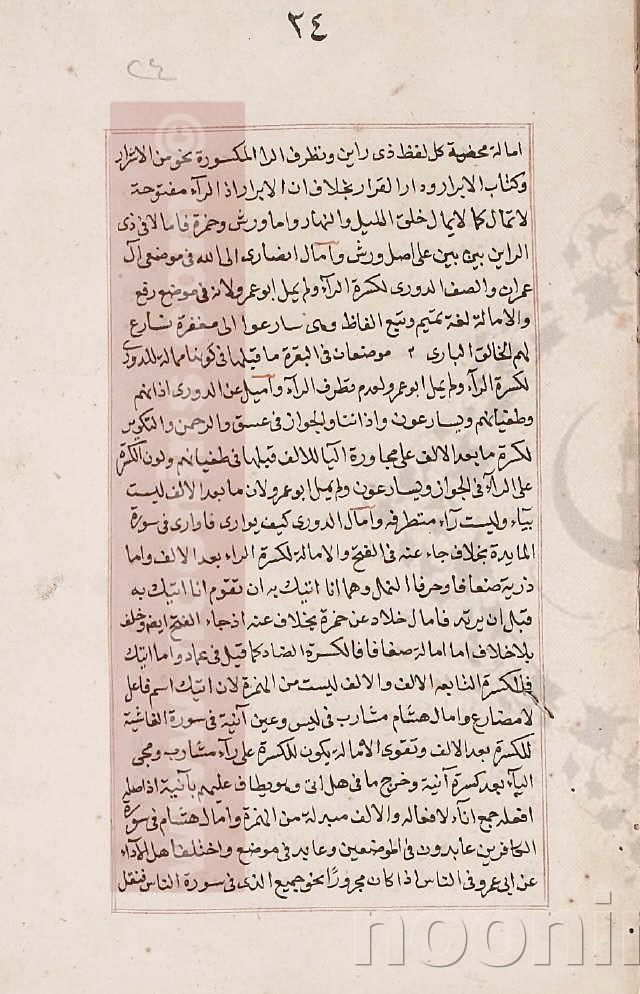 ٢٤
٢٤
امالة محضة كل لفظ ذى راين وتطرف الرا المكسورة نحو من الاشرار
وكتاب الابرار ودار القرار بخلاف ان الابرار اذ الرآء مفتوحة
لا تمال كما لا يمال خلق الليل والنهار واما ورش وحمزة فامالا فى ذى
الراين بين بين على اصل ورش وآمال انصارى الى الله فى موضعى آل
عمران والصف الدورى لكسرة الرآء ولم يمل ابو عمرو لانه فى موضع رفع
والامالة لغة تميم وتبع الفاظ وهى سارعوا الى مغفرة نسارع
لهم الخالق البارى ٢ موضعان فى البقرة ما قبلها فى كونها ممالة للدورى
لكسرة الرآء ولم يمل ابو عمرو لعدم تطرف الرآء وآميل عن الدورى اذانهم
وطغيانهم ويسارعون واذاننا والجوار فى عسق والرحمن والتكوير
لكسرة ما بعد الالف على مجاورة اليا للالف قبلها فى طغيانهم وكون الكسرة
على الرآء فى الجوار ويسارعون ولم يمل ابو عمرو لان ما بعد الالف ليست
بيآء وليست رآء متطرفه وآمال الدورى كيف يوارى فاوارى فى سورة
المايدة بخلاف جاء عنه فى الفتح والامالة لكسرة الراء بعد الالف واما
ذرية ضعافا وحرفا النمل وهما انا اتيك به ان تقوم انا اتيك به
قبل ان يرتد فامال خلاد عن حمزة بخلاف عنه اذ جاء الفتح ايضا وخلف
بلا خلاف اما امالة ضعافا فالكسرة الضاد كما قيل فى عماد واما اتيك
فلكسرة التابعه الالف والالف ليست من الهمزة لان اتيك اسم فاعل
لا مضارع وامال هشام مشارب فى ليس وعين آنية فى سورة الغاشية
للكسرة بعد الالف وتقوى الامالة بكون للكسرة على رآء مشارب ومجى
اليآء بعد كسرة آنية وخرج ما فى هل اتى وهو يطاف عليهم بآنية اذ اصله
افعلة جمع انآء لا فعالة والالف مبدلة من الهمزة وامال هشام فى سورة
الكافرين عابدون فى الموضعين وعابد فى موضع واختلف اهل الاداء
عن ابى عمرو فى الناس اذا كان مجرورًا نحو جميع الذى فى سورة الناس فنقل
noonin